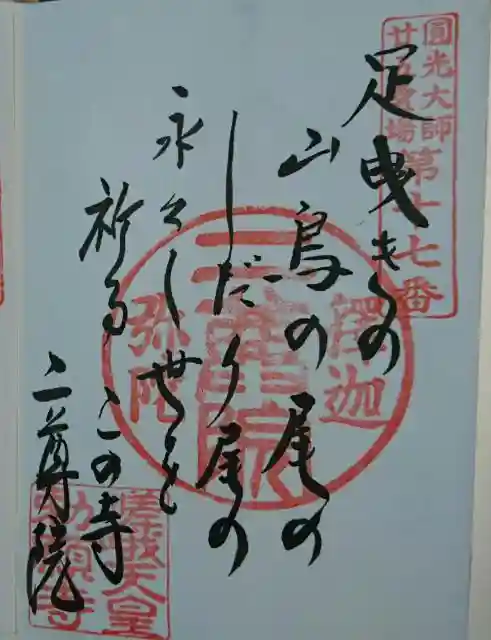 圓光大師
廿五霊場
第十七番
足曳きの
山鳥の尾の
しだり尾の
永々し世を
祈る この寺
二尊院
釋迦
二尊院
弥陀
嵯峨天皇
勅願寺